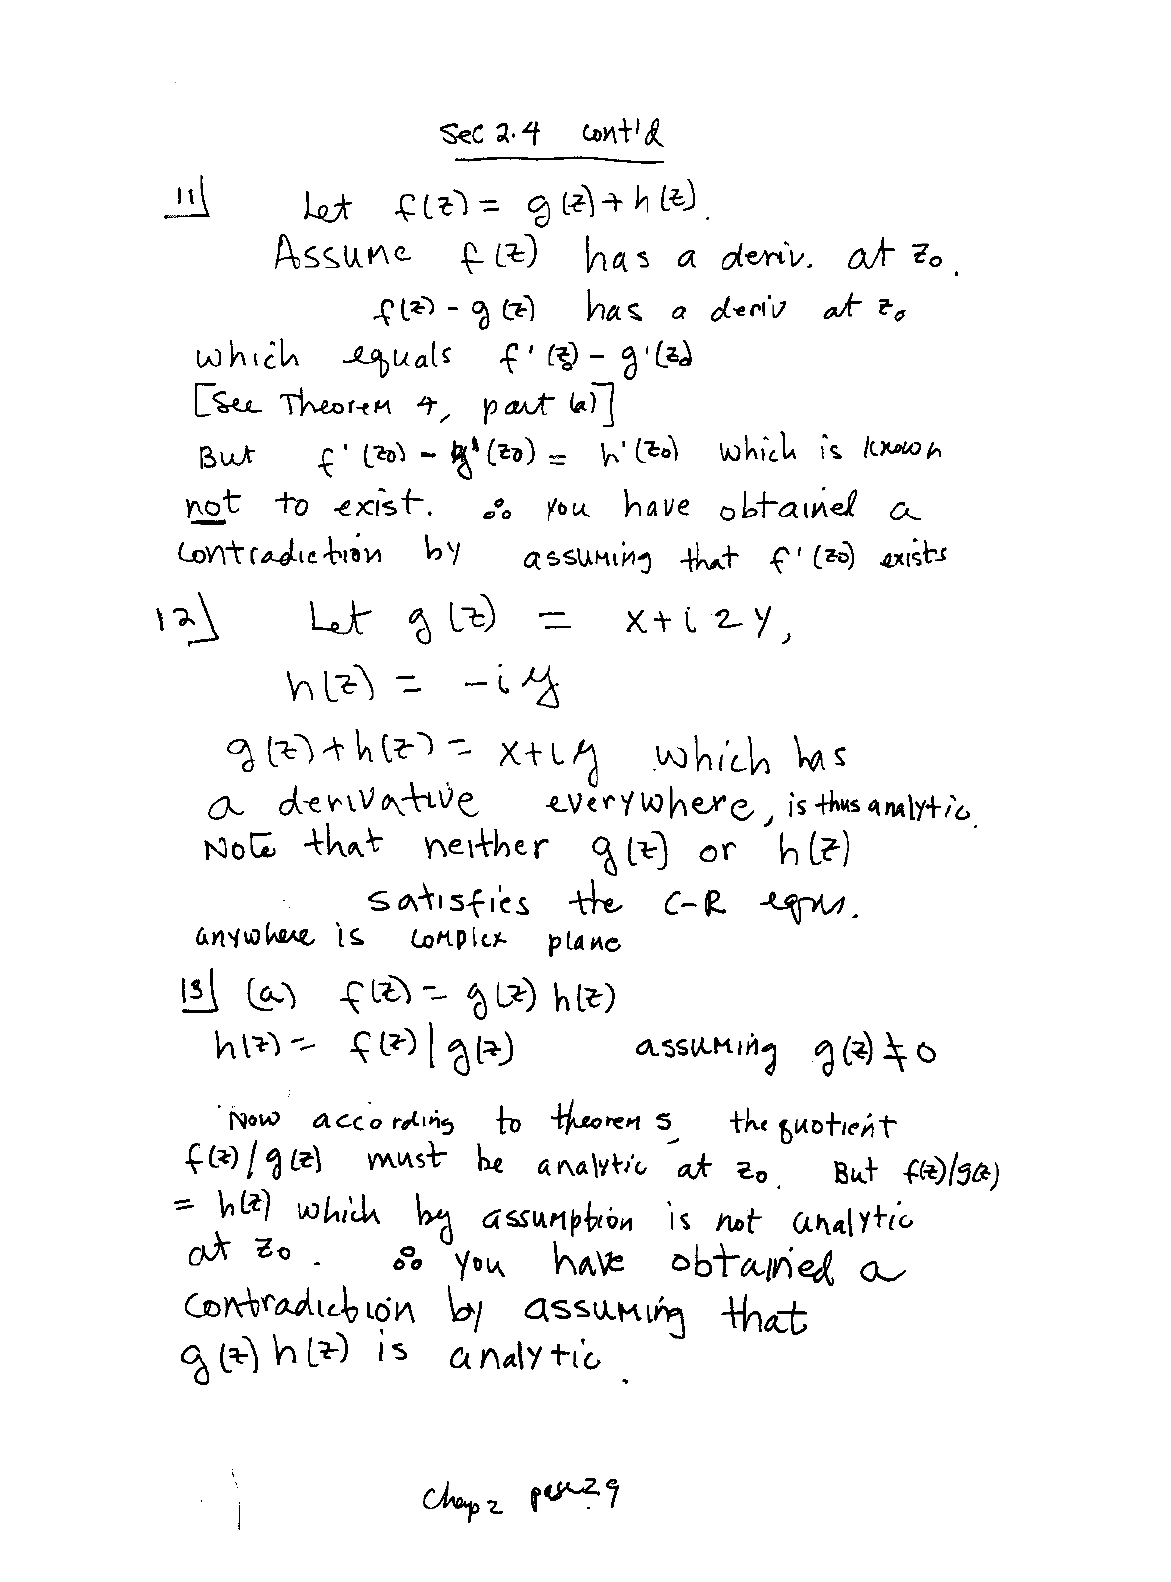 Sec 2.4 cont'd
11] Let f(z) = g(z) + h(z).
Assume f(z) has a deriv. at z₀.
f(z) - g(z) has a deriv at z₀
which equals f'(z₀) - g'(z₀)
[See Theorem 4, part (a)]
But f'(z₀) - g'(z₀) = h'(z₀) which is known
not to exist. ∴ you have obtained a
contradiction by assuming that f'(z₀) exists
12] Let g(z) = x + i2y,
h(z) = -iy
g(z) + h(z) = x + iy which has
a derivative everywhere, is thus analytic.
Note that neither g(z) or h(z)
satisfies the C-R eqns.
anywhere is complex plane
13] (a) f(z) = g(z) h(z)
h(z) = f(z) / g(z) assuming g(z) ≠ 0
Now according to theorem 5 the quotient
f(z) / g(z) must be analytic at z₀. But f(z)/g(z)
= h(z) which by assumption is not analytic
at z₀. ∴ you have obtained a
contradiction by assuming that
g(z) h(z) is analytic.
Chap 2 page 29